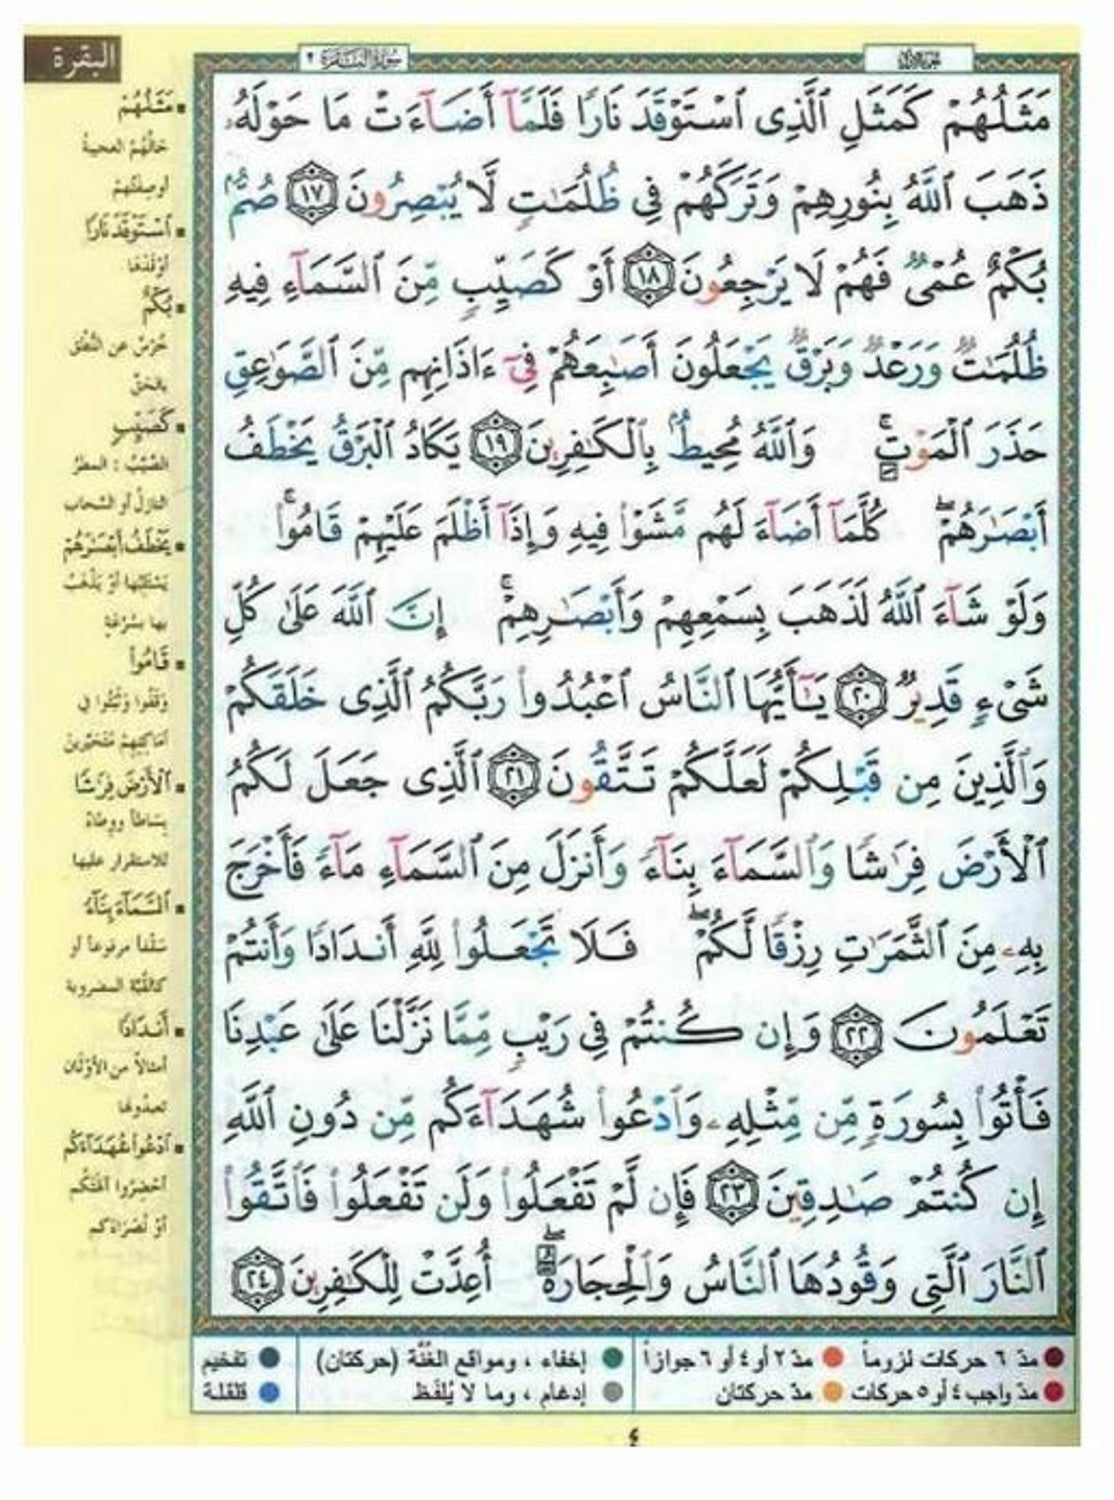 البقرة
سُورَةُ البَقَرَة ٢
الجزء الأول
مَثَلُهُمْ كَمَثَلِ ٱلَّذِى ٱسْتَوْقَدَ نَارًا فَلَمَّآ أَضَآءَتْ مَا حَوْلَهُۥ
ذَهَبَ ٱللَّهُ بِنُورِهِمْ وَتَرَكَهُمْ فِى ظُلُمَـٰتٍ لَّا يُبْصِرُونَ ١٧ صُمٌّۢ
بُكْمٌ عُمْىٌ فَهُمْ لَا يَرْجِعُونَ ١٨ أَوْ كَصَيِّبٍ مِّنَ ٱلسَّمَآءِ فِيهِ
ظُلُمَـٰتٌ وَرَعْدٌ وَبَرْقٌ يَجْعَلُونَ أَصَـٰبِعَهُمْ فِىٓ ءَاذَانِهِم مِّنَ ٱلصَّوَٰعِقِ
حَذَرَ ٱلْمَوْتِ ۚ وَٱللَّهُ مُحِيطٌۢ بِٱلْكَـٰفِرِينَ ١٩ يَكَادُ ٱلْبَرْقُ يَخْطَفُ
أَبْصَـٰرَهُمْ ۖ كُلَّمَآ أَضَآءَ لَهُم مَّشَوْا۟ فِيهِ وَإِذَآ أَظْلَمَ عَلَيْهِمْ قَامُوا۟ ۚ
وَلَوْ شَآءَ ٱللَّهُ لَذَهَبَ بِسَمْعِهِمْ وَأَبْصَـٰرِهِمْ ۚ إِنَّ ٱللَّهَ عَلَىٰ كُلِّ
شَىْءٍ قَدِيرٌ ٢٠ يَـٰٓأَيُّهَا ٱلنَّاسُ ٱعْبُدُوا۟ رَبَّكُمُ ٱلَّذِى خَلَقَكُمْ
وَٱلَّذِينَ مِن قَبْلِكُمْ لَعَلَّكُمْ تَتَّقُونَ ٢١ ٱلَّذِى جَعَلَ لَكُمُ
ٱلْأَرْضَ فِرَٰشًا وَٱلسَّمَآءَ بِنَآءً وَأَنزَلَ مِنَ ٱلسَّمَآءِ مَآءً فَأَخْرَجَ
بِهِۦ مِنَ ٱلثَّمَرَٰتِ رِزْقًا لَّكُمْ ۖ فَلَا تَجْعَلُوا۟ لِلَّهِ أَندَادًا وَأَنتُمْ
تَعْلَمُونَ ٢٢ وَإِن كُنتُمْ فِى رَيْبٍ مِّمَّا نَزَّلْنَا عَلَىٰ عَبْدِنَا
فَأْتُوا۟ بِسُورَةٍ مِّن مِّثْلِهِۦ وَٱدْعُوا۟ شُهَدَآءَكُم مِّن دُونِ ٱللَّهِ
إِن كُنتُمْ صَـٰدِقِينَ ٢٣ فَإِن لَّمْ تَفْعَلُوا۟ وَلَن تَفْعَلُوا۟ فَٱتَّقُوا۟
ٱلنَّارَ ٱلَّتِى وَقُودُهَا ٱلنَّاسُ وَٱلْحِجَارَةُ ۖ أُعِدَّتْ لِلْكَـٰفِرِينَ ٢٤
مَثَلُهُمْ
حَالُهُمْ العجيبةُ
أو صِفَتُهمْ
ٱسْتَوْقَدَ نَارًا
أوْقَدَهَا
بُكْمٌ
خُرْسٌ عن النُّطْق
بالحَقِّ
كَصَيِّبٍ
الصَّيّبُ : المطرُ
النازلُ أو السَّحاب
يَخْطَفُ أَبْصَـٰرَهُمْ
يَسْتَلِبُها أوْ يَذْهَبُ
بها بسُرْعَةٍ
قَامُوا۟
وَقَفُوا وَثَبَتُوا في
أمَاكِنِهِمْ مُتَحَيِّرِينَ
ٱلْأَرْضَ فِرَٰشًا
بِساطاً ووِطاءً
للاستقرار عليها
ٱلسَّمَآءَ بِنَآءً
سَقْفاً مرفوعاً أو
كالقُبَّة المضروبة
أَندَادًا
أمثالاً من الأوْثَان
تعبدُونها
ٱدْعُوا۟ شُهَدَآءَكُم
أحْضِرُوا آلهتَكُم
أوْ نُصَرَاءَكم
مدّ ٦ حركات لزوماً مدّ ٢ أو ٤ أو ٦ جوازاً إخفاء ، ومواقع الغُنَّة (حركتان) تفخيم
مدّ واجب ٤ أو ٥ حركات مدّ حركتان إدغام ، وما لا يُلفَظ قلقلة
٤